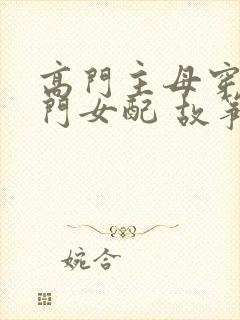 高門主母穿
門女配 故事
婉合